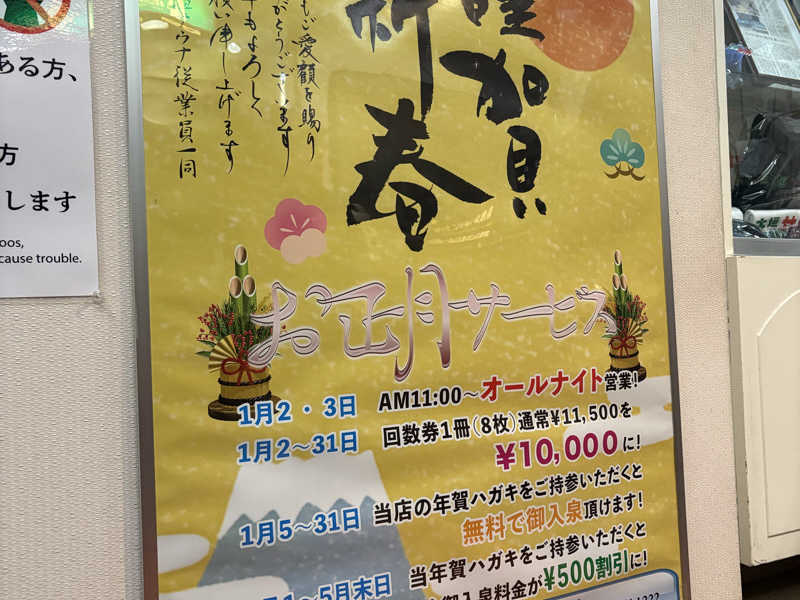 ある方、
方
します
oos,
cause trouble.
謹賀
新春
もご愛顧を賜り
がとうございます
もよろしく
い申し上げます
ウナ従業員一同
お正月サービス
1月2・3日 AM11:00～オールナイト営業!
1月2～31日 回数券1冊(8枚)通常¥11,500を
¥10,000に!
1月5～31日 当店の年賀ハガキをご持参いただくと
無料で御入泉頂けます!
1～5月末日 当年賀ハガキをご持参いただくと
御入泉料金が¥500割引に!